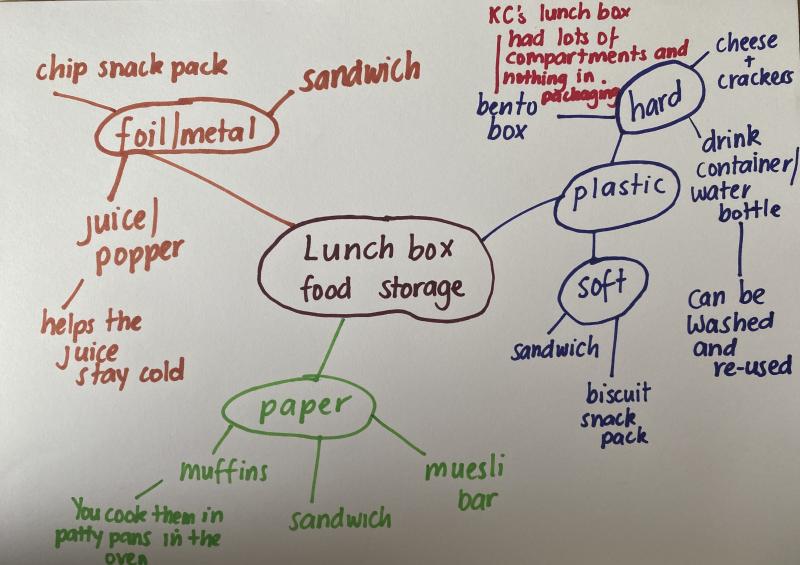 KC's lunch box
had lots of
compartments and
nothing in.
packaging
chip snack pack
sandwich
foil/metal
juice/
popper
helps the
juice
stay cold
Lunch box
food storage
hard
cheese
+
crackers
bento
box
drink
container/
water
bottle
can be
washed
and
re-used
plastic
soft
sandwich
biscuit
snack
pack
paper
muffins
You cook them in
patty pans in the
oven
sandwich
muesli
bar